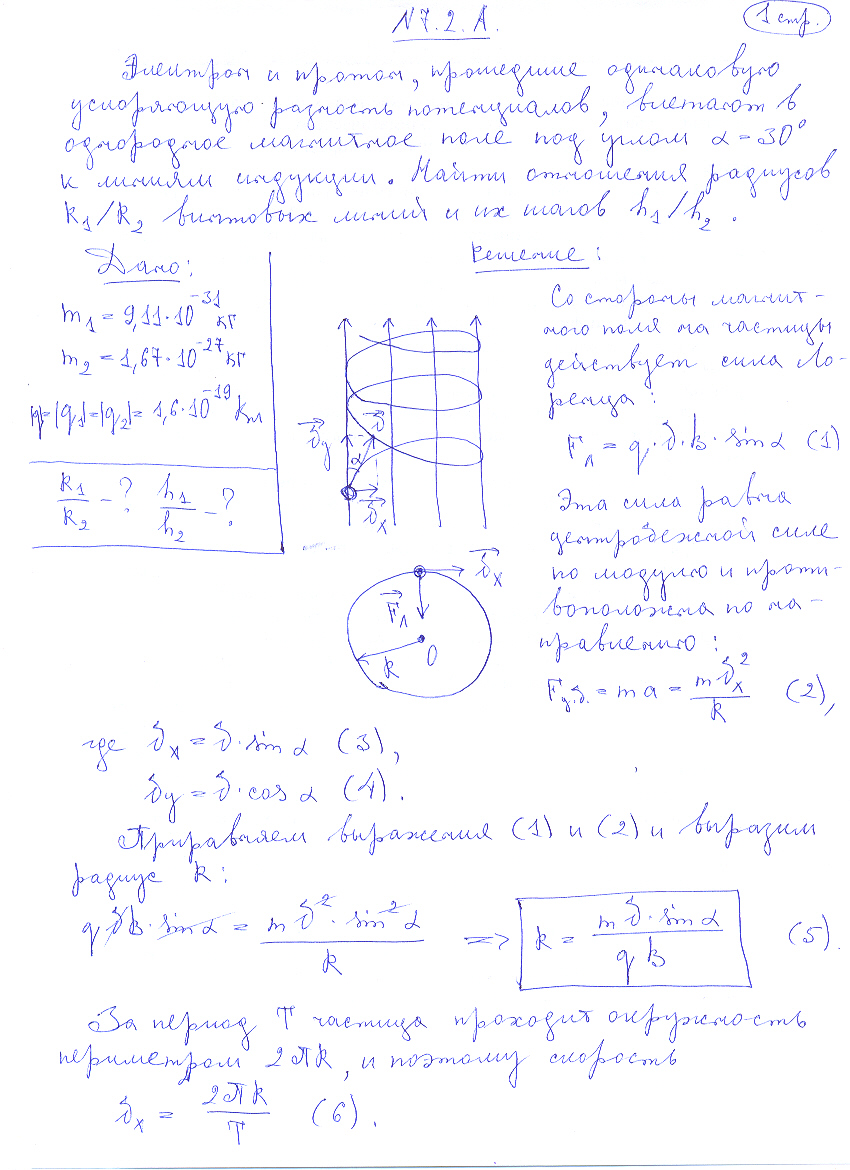 N 7.2.А.
1 стр.
Электрон и протон, прошедшие одинаковую
ускоряющую разность потенциалов, влетают в
однородное магнитное поле под углом α = 30°
к линиям индукции. Найти отношения радиусов
R₁/R₂ винтовых линий и их шагов h₁/h₂.
Дано:
m₁ = 9,11·10⁻³¹ кг
m₂ = 1,67·10⁻²⁷ кг
|q|=|q₁|=|q₂|= 1,6·10⁻¹⁹ Кл
R₁/R₂ – ? h₁/h₂ – ?
Решение:
Со стороны магнит-
ного поля на частицы
действует сила Ло-
ренца:
Fл = q·υ·B·sinα (1)
Эта сила равна
центробежной силе
по модулю и проти-
воположна по на-
правлению:
Fц.б. = ma = mυₓ²/R (2),
υy
υ
α
υₓ
υₓ
Fл
R
O
где υₓ = υ·sin α (3),
υy = υ·cos α (4).
Приравняем выражения (1) и (2) и выразим
радиус R:
qυB·sinα = mυ²·sin²α/R => R = mυ·sinα/qB (5).
За период T частица проходит окружность
периметром 2πR, и поэтому скорость
υₓ = 2πR/T (6).